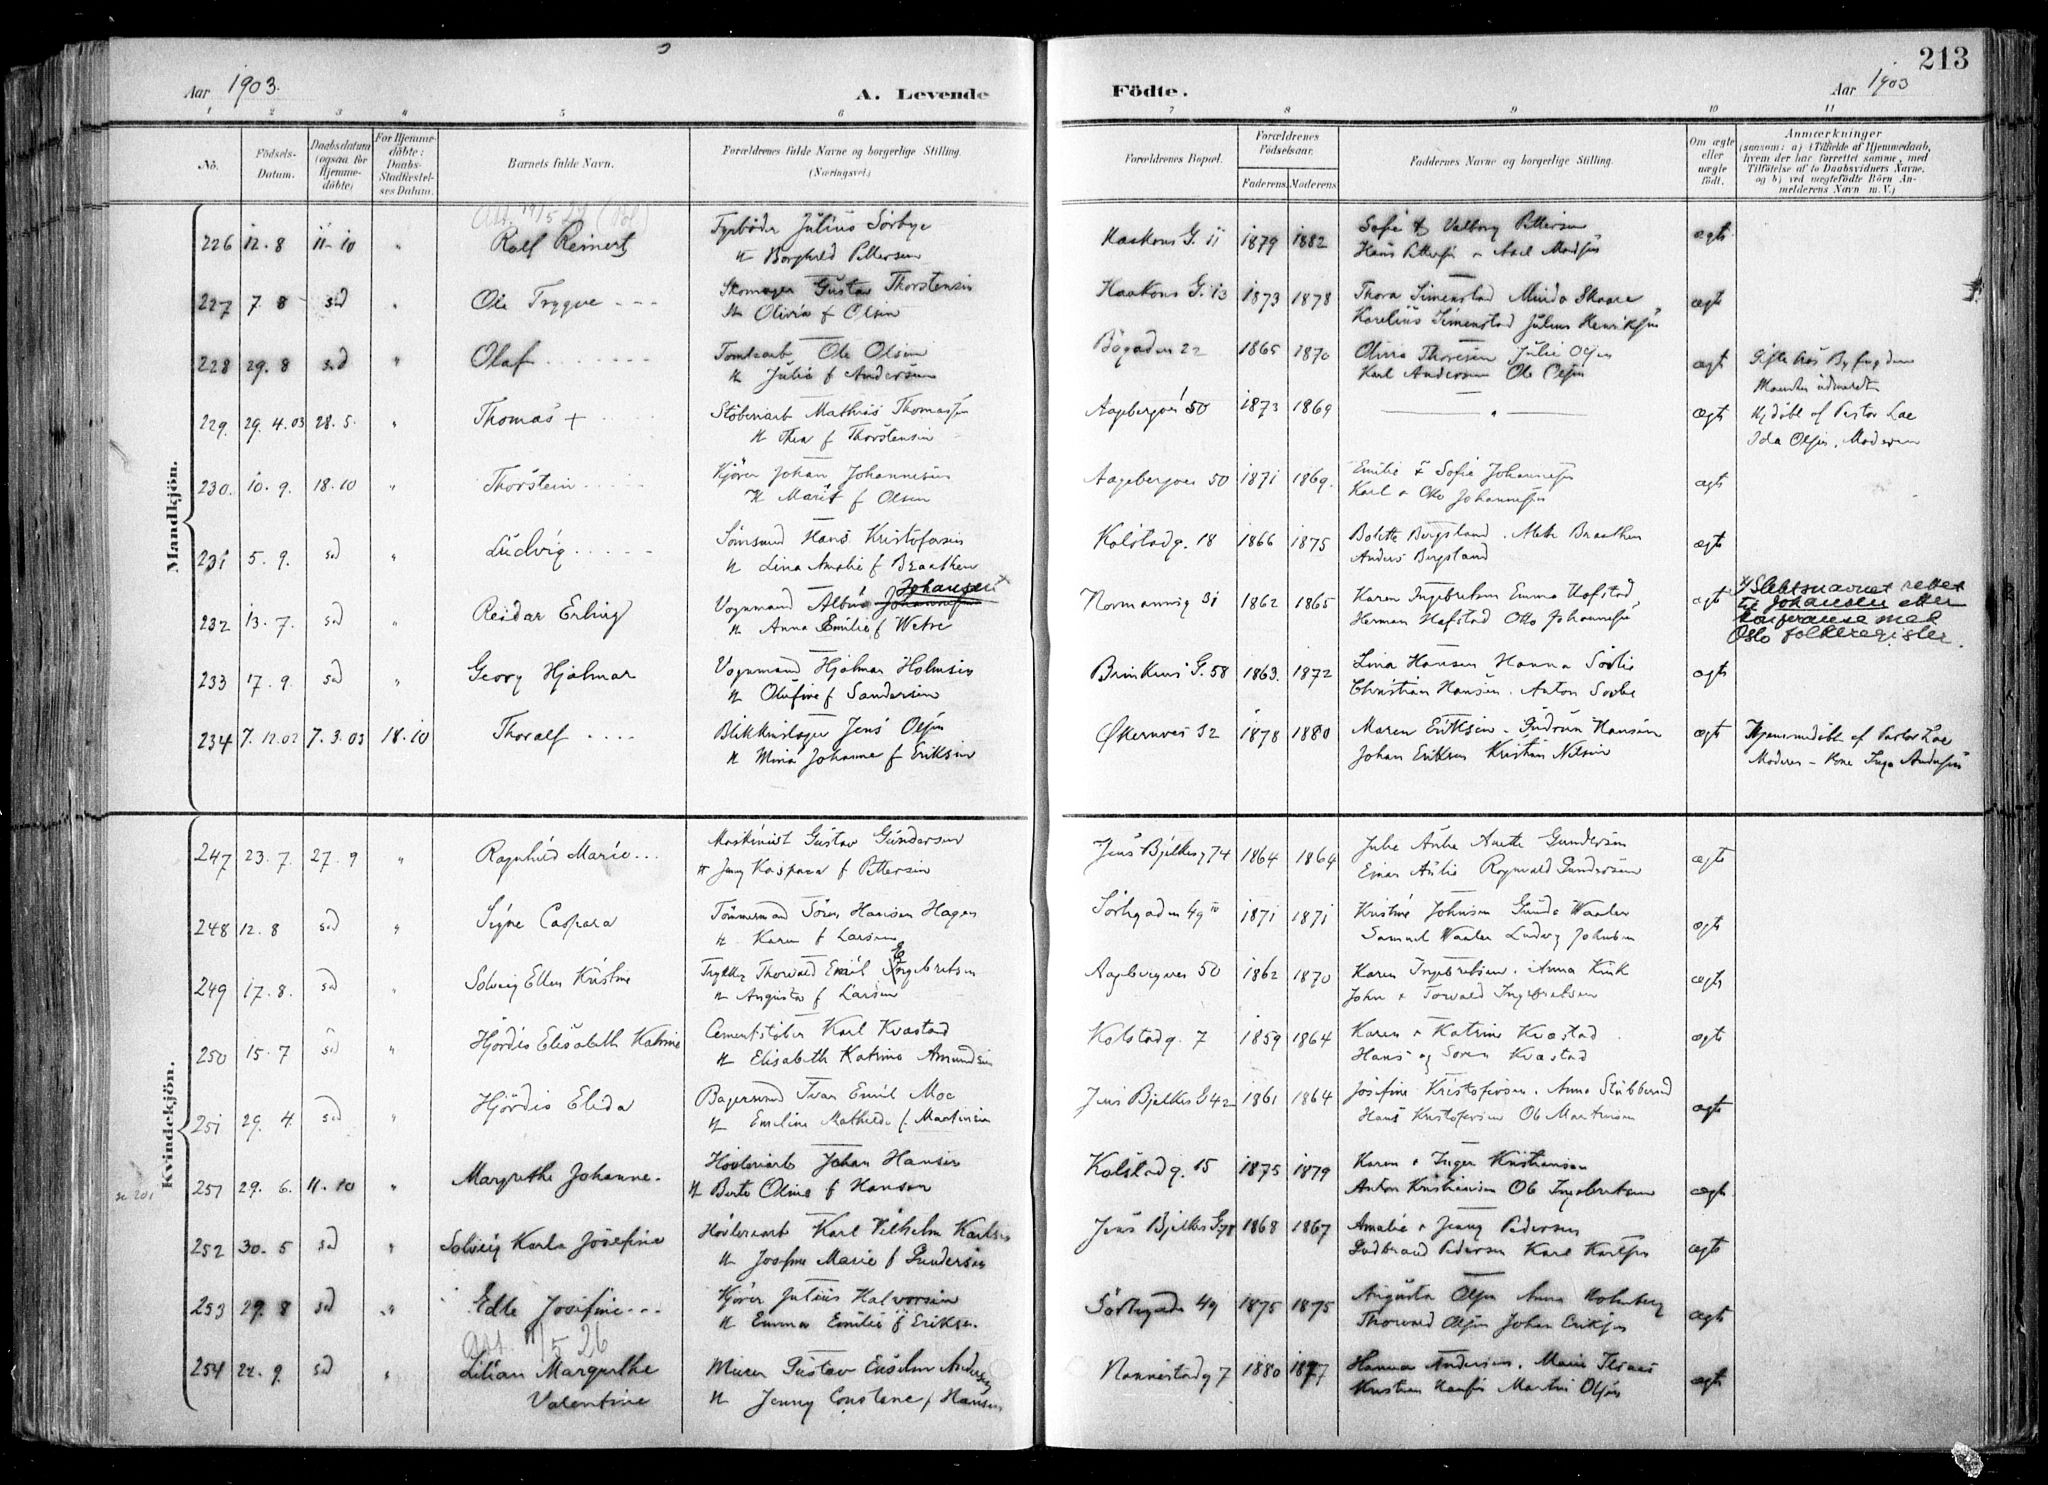 213
Aar 1903.
A. Levende
Födte.
Aar 1903
1 2 3 4 5 6 7 8 9 10 11
No.
Födsels-Datum.
Daabsdatum (ogsaa for Hjemme-döbte)
For Hjemme-döbte: Daabs-Stadfæstel-ses Datum.
Barnets fulde Navn.
Forældrenes fulde Navne og borgerlige Stilling. (Næringsvei.)
Forældrenes Bopæl.
Forældrenes Födselsaar.
Faderens. Moderens.
Faddernes Navne og borgerlige Stilling.
Om ægte eller uægte födt.
Anmærkninger
(saasom: a) i Tilfælde af Hjemmedaab, hvem der har forrettet samme, med Tilföielse af to Daabsvidners Navne. og b) ved uægtefödte Börn An-melderens Navn m. V.)
Mandkjön.
Att. 19/5 27
226 12.8 11-10 " Rolf Reinert Julius Sörbye Haakons G. 11 1879 1882 Sofie & Valborg Pettersen ægte
n Borghild Pettersen Hans Pettersen Axel
227 7 8 sd " Ole Trygve Skomager Gustav Thorstensen Haakons G. 13 1873 1878 Thora Simenstad Skaare ægt
n Olivia f Olsen Karelius Simenstad Julius Henriksen
228 29.8 sd " Olaf Tomtearb Ole Olsen Bögaden 22 1865 1870 Thoresen Julie Olsen ægt
n Julie f Andersen Karl Andersen Ole Olsen
229. 29.4.03 28.5. " Thomas + Stöberiarb Mathias Thomassen Aagebergvei 50 1873 1869 " ægt Hjdöbt af Pastor Lae
n Thea f Thorstensen Ida Olsen. Moderen
230. 10.9. 18.10 " Thorstein Kjörer Johan Johannesen Aagebergvei 50 1871 1869. Emilie & Sofie Johannessen ægt
n Marit f Olsen Karl & Otto Johannessen
231 5.9. sd " Ludvig Hans Kristofersen Kolstadg. 18 1866 1875 Bolette Bergsland. Braathen ægt
n Lina Amalie f Braathen Anders Bergsland
232 13.7. sd " Reidar Erling Vognmand Johansen x Normannsg 31 1862 1865 Karen Ingebretsen Emma Hofstad ægt x/ Slektsnavnet rettet til Johansen etter konferanse med Oslo folkeregister.
n Anna Emilie f Wetre Herman Hofstad Otto Johannesen
233 17.9. sd " Georg Hjalmar Vognmand Hjalmar Holmsen Brinkens G. 58 1863. 1872 Lina Hansen Hanna ægt
n Olufine f Sandersen Christian Hansen. Anton
234 7.12.02 7.3.03 18.10 Thoralf Jens Olsen Økernvei 32 1878 1880 Maren Eriksen. Gudrun Hansen ægt Hjemmedöbt af Pastor Lae
n Mina Johanne f Eriksen Johan Eriksen Kristian Nilsen Moderen - Kone Inga Andersen
Kvindekjön.
247 23.7. 27.9 " Ragnhild Marie Maskinist Gustav Gundersen Jens Bjelkes g 74 1864 1864 Anette Gundersen ægt
n Jenny Kaspara f Pettersen Einar Ragnvald Gundersen
248 12.8 sd " Signe Caspara Tömmermand Sören Hansen Hagen Sörligaden 49 IV 1871 1871 Kristine Johnsen Waaler ægt
n Karen f Larsen Samuel Waaler Ludvig Johnsen
249 17.8. sd " Solveig Ellen Kristine Thorvald Emil Ingebretsen Aagebergvei 50 1862 1870 Karen Ingebretsen. Anna ægt
n Augusta f Larsen John & Torvald Ingebretsen
250 15.7 sd " Hjördis Elisabeth Katrine Cementstöber Karl Kvastad Kolstadg. 7 1859 1864 Karen & Katrine Kvastad ægt
n Elisabeth Katrine Amundsen Hans og Soren Kvastad
251 29.4. sd " Hjördis Elida Bagersvend Ivar Emil Moe Jens Bjelkes G 42 1861 1864 Josefine Kristofersen. Anna Stubberud ægt
n Emiline Mathilde f. Martinsen Hans Kristofersen Ole Martinsen
se 201
251 29.6. 11.10 " Margrethe Johanne. Hövleriarb Johan Hansen Kolstadg. 15 1875 1879 Karen & Inger Kristiansen ægt
n Berte Oline f Hansen Anton Kristiansen Ole Ingebretsen
252 30.5 sd " Solveig Karla Josefine Hövleriarb Karl Vilhelm Karlsen Jens Bjelkes G 78 1868 1867 Amalie & Jenny Pedersen ægt
n Josefine Marie f Gundersen Gudbrand Pedersen Karl Karlsen
253 29.8 sd " Edle Josefine Kjörer Julius Halvorsen Sörligade 49 1875 1875 Augusta Olsen Anna Holmberg ægt
n Emma Emilie f Eriksen. Thorvald Olsen Johan Eriksen
Att. 11/5 26
254 22.9. sd " Lilian Margrethe Murer Gustav Enselm Andersen Nannestadg 7 1880 1877 Hanna Andersen. Marie ægt
Valentine n Jenny Constene f Hansen Kristian Martin Olsen